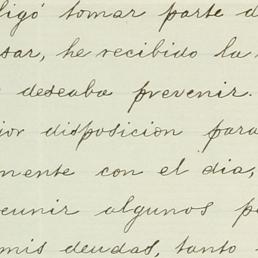 ligó tomar parte d
sar, he recibido la
deseaba prevenir.
jor disposicion para
mente con el dia,
eunir algunos p
mis deudas, tanto